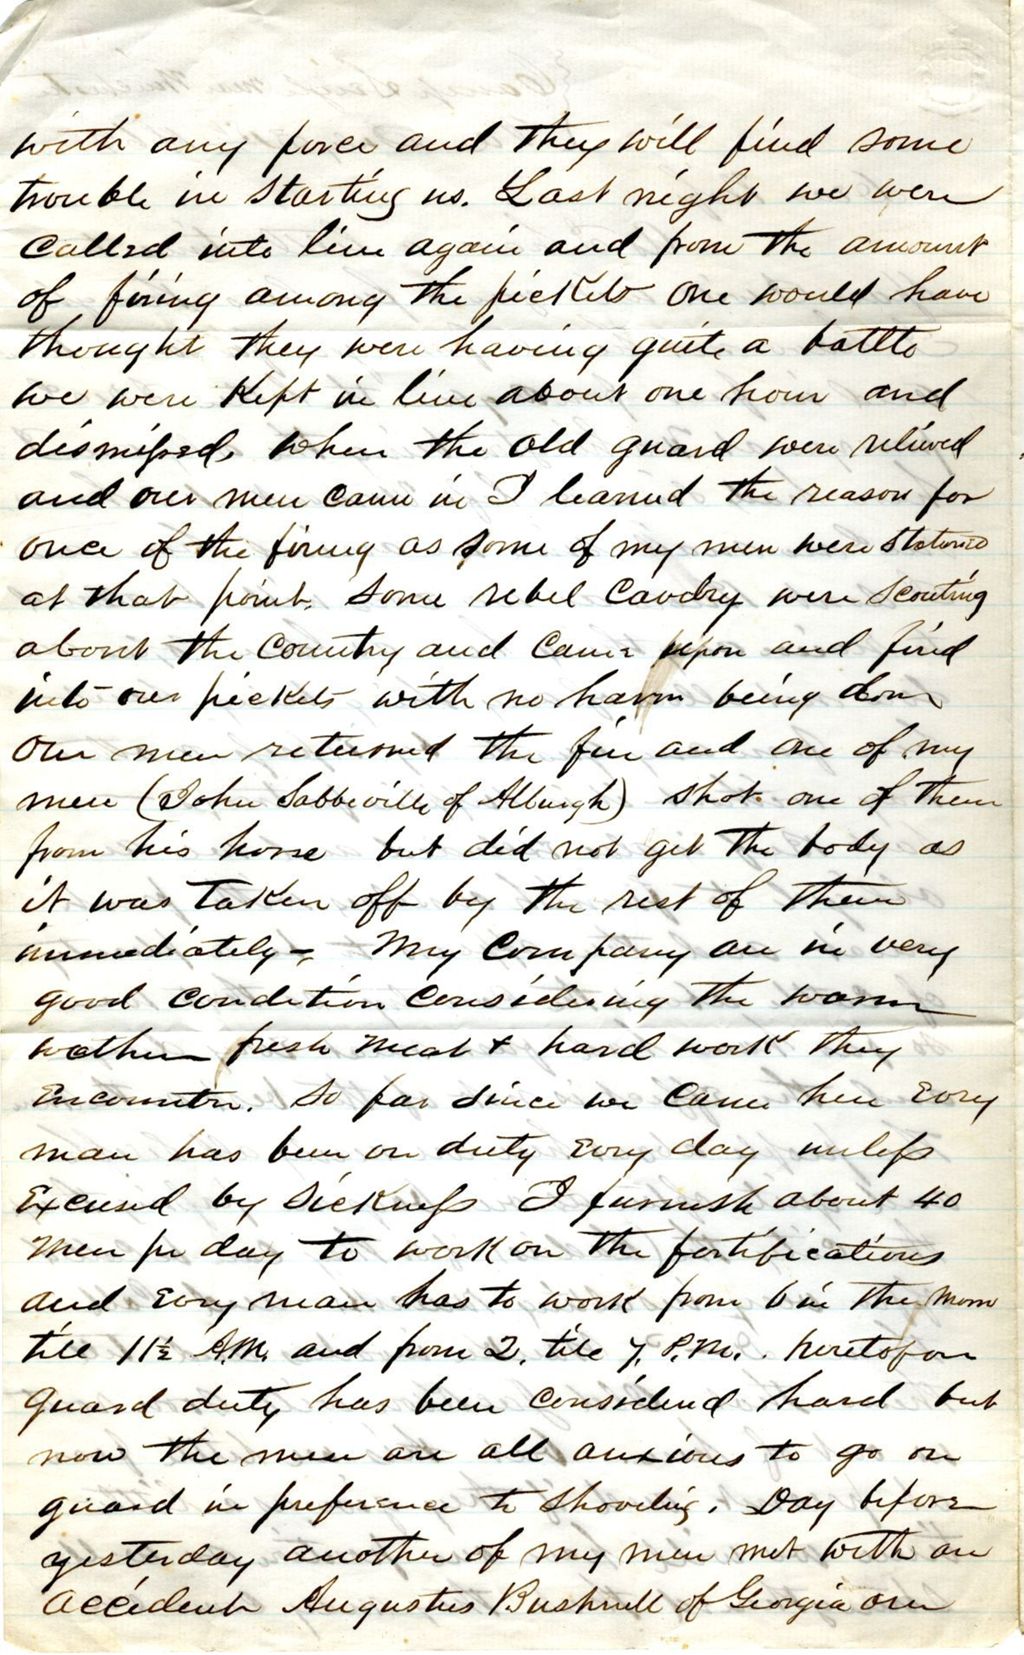 with any force and they will find some
trouble in starting us. Last night we were
called into line again and from the amount
of firing among the pickets one would have
thought they were having quite a battle
we were kept in line about one hour and
dismissed, when the old guard were relieved
and our men came in I learned the reason for
once of the firing as some of my men were stationed
at that point. Some rebel cavalry were scouting
about the country and came upon and fired
into our pickets with no harm being done
Our men returned the fire and one of my
men (John Sabbeville of Alburgh) shot one of them
from his horse but did not get the body as
it was taken off by the rest of them
immediately - My company are in very
good condition considering the warm
wether fresh meat & hard work they
encounter. So far since we came here evry
man has been on duty evry day unless
excused by sickness I furnish about 40
men pr day to work on the fortifications
and evry man has to work from 6 in the morn
till 11½ A.M. and from 2. till 7. P.M. . heretofore
guard duty has been considered hard but
now the men are all anxious to go on
guard in preference to shoveling. Day before
yesterday another of my men met with an
accident Augustus Bushnell of Georgia our